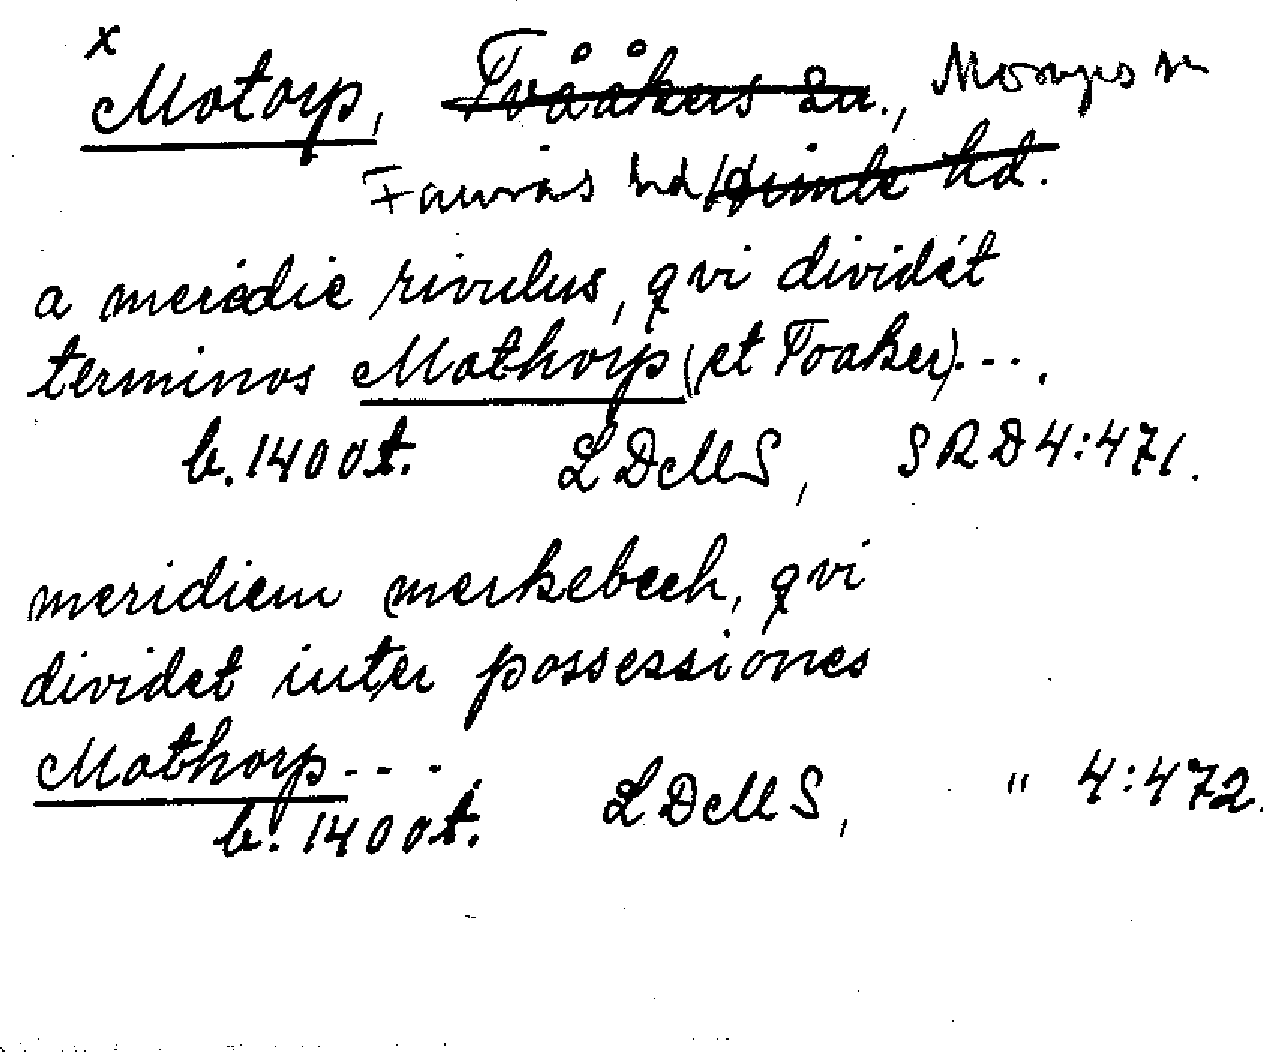 x
Motorp, Tvååkers sn., Morups sn
Faurås hd Himle hd.
a meredie rivulus, qvi dividit
terminos Mothorp (et Toaker)...
b. 1400t. LDcMS, SRD 4:471.
meridiem merkebech, qvi
dividet inter possessiones
Mothorp....
b. 1400t. LDcMS, " 4:472.